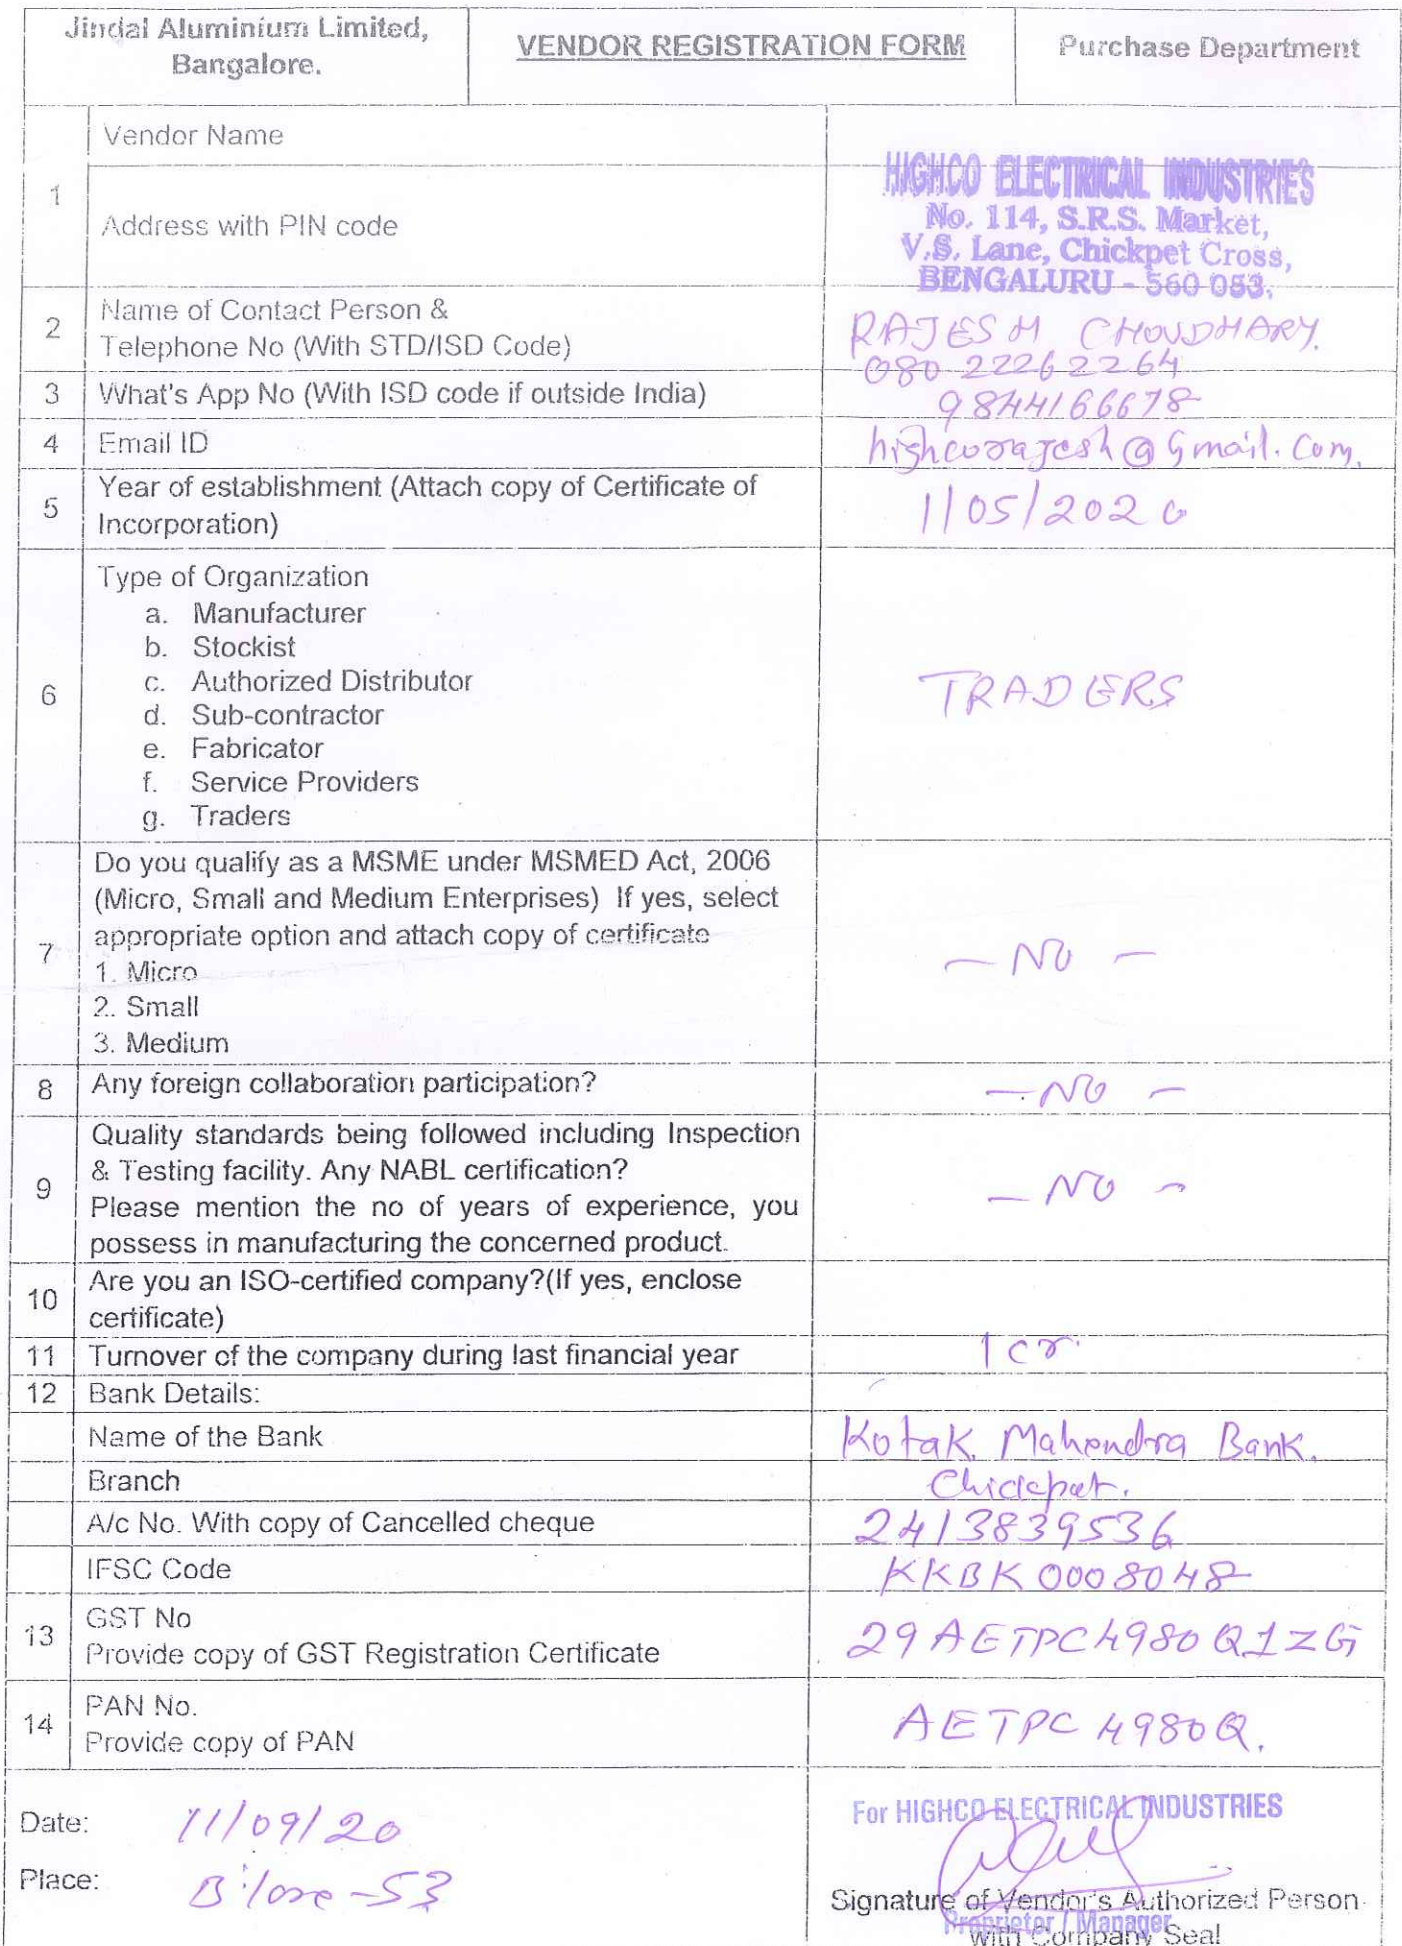 Jindal Aluminium Limited,
Bangalore.
VENDOR REGISTRATION FORM
Purchase Department
1
Vendor Name
HIGHCO ELECTRICAL INDUSTRIES
Address with PIN code
No. 114, S.R.S. Market,
V.S. Lane, Chickpet Cross,
BENGALURU - 560 053.
2
Name of Contact Person &
Telephone No (With STD/ISD Code)
RAJESH CHOUDHARY.
080 22262264
3
What's App No (With ISD code if outside India)
9844166678
4
Email ID
highcorajesh@Gmail.com.
5
Year of establishment (Attach copy of Certificate of
Incorporation)
1/05/2020
6
Type of Organization
a. Manufacturer
b. Stockist
c. Authorized Distributor
d. Sub-contractor
e. Fabricator
f. Service Providers
g. Traders
TRADERS
7
Do you qualify as a MSME under MSMED Act, 2006
(Micro, Small and Medium Enterprises) If yes, select
appropriate option and attach copy of certificate
1. Micro
2. Small
3. Medium
- NO -
8
Any foreign collaboration participation?
- NO -
9
Quality standards being followed including Inspection
& Testing facility. Any NABL certification?
Please mention the no of years of experience, you
possess in manufacturing the concerned product.
- NO -
10
Are you an ISO-certified company?(If yes, enclose
certificate)
11
Turnover of the company during last financial year
1 cr.
12
Bank Details:
Name of the Bank
Kotak Mahendra Bank.
Branch
Chickpet.
A/c No. With copy of Cancelled cheque
2413839536
IFSC Code
KKBK0008048
13
GST No
Provide copy of GST Registration Certificate
29AETPC4980Q1ZG
14
PAN No.
Provide copy of PAN
AETPC4980Q.
Date: 11/09/20
Place: B'lore-53
For HIGHCO ELECTRICAL INDUSTRIES
Signature of Vendor's Authorized Person
Proprietor / Manager
with Company Seal